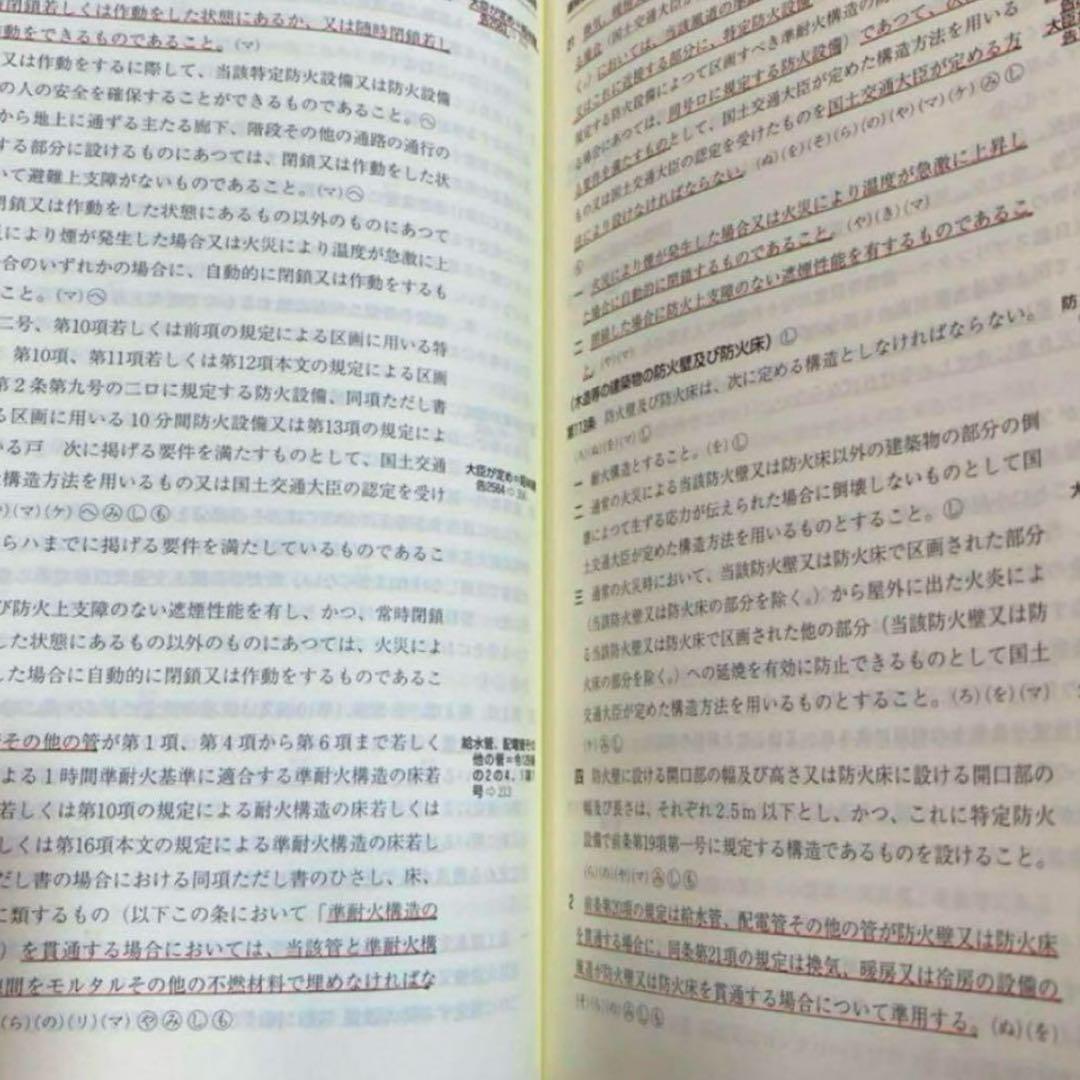 閉鎖若しくは作動をした状態にあるか、又は随時閉鎖若し
動をできるものであること。(マ)
又は作動をするに際して、当該特定防火設備又は防火設備
の人の安全を確保することができるものであること。㋬
から地上に通ずる主たる廊下、階段その他の通路の通行の
する部分に設けるものにあつては、閉鎖又は作動をした状
いて避難上支障がないものであること。(マ)㋬
閉鎖又は作動をした状態にあるもの以外のものにあつて
により煙が発生した場合又は火災により温度が急激に上
合のいずれかの場合に、自動的に閉鎖又は作動をするも
こと。(マ)㋬
二号、第10項若しくは前項の規定による区画に用いる特
、第10項、第11項若しくは第12項本文の規定による区画
第2条第九号の二ロに規定する防火設備、同項ただし書
る区画に用いる10分間防火設備又は第13項の規定によ
いる戸 次に掲げる要件を満たすものとして、国土交通
構造方法を用いるもの又は国土交通大臣の認定を受け
(マ)(ケ)
らハまでに掲げる要件を満たしているものであるこ
び防火上支障のない遮煙性能を有し、かつ、常時閉鎖
した状態にあるもの以外のものにあつては、火災によ
した場合に自動的に閉鎖又は作動をするものであるこ
その他の管が第1項、第4項から第6項まで若しく
よる1時間準耐火基準に適合する準耐火構造の床若
若しくは第10項の規定による耐火構造の床若しくは
しくは第16項本文の規定による準耐火構造の床若し
だし書の場合における同項ただし書のひさし、床、
に類するもの(以下この条において「準耐火構造の
)を貫通する場合においては、当該管と準耐火構
間をモルタルその他の不燃材料で埋めなければな
(ら)(の)(リ)(マ)
大臣が定め
告2564⇨
給水管、配電管その
他の管=令129条
の2の4、1項
号⇨213
く。)においては、当該風道の
又はこれに近接する部分に、特定防火設備
規定する防火設備によつて区画すべき準耐火構造の
る場合にあつては、同号ロに規定する防火設備)であつて、次
る要件を満たすものとして、国土交通大臣が定めた構造方法を用いる
もの又は国土交通大臣の認定を受けたものを国土交通大臣が定める方
法により設けなければならない。(ぬ)(を)(ぞ)(ら)(の)(や)(マ)(ケ)
一 火災により煙が発生した場合又は火災により温度が急激に上昇し
た場合に自動的に閉鎖するものであること。(や)(き)(マ)
二 閉鎖した場合に防火上支障のない遮煙性能を有するものであるこ
と。(や)(マ)
(木造等の建築物の防火壁及び防火床)
第113条 防火壁及び防火床は、次に定める構造としなければならない。
防
一 耐火構造とすること。(を)
二 通常の火災による当該防火壁又は防火床以外の建築物の部分の倒
壊によつて生ずる応力が伝えられた場合に倒壊しないものとして国
土交通大臣が定めた構造方法を用いるものとすること。
三 通常の火災時において、当該防火壁又は防火床で区画された部分
(当該防火壁又は防火床の部分を除く。)から屋外に出た火炎によ
る当該防火壁又は防火床で区画された他の部分(当該防火壁又は防
火床の部分を除く。)への延焼を有効に防止できるものとして国土
交通大臣が定めた構造方法を用いるものとすること。(ろ)(を)(マ)
四 防火壁に設ける開口部の幅及び高さ又は防火床に設ける開口部の
幅及び長さは、それぞれ2.5m以下とし、かつ、これに特定防火
設備で前条第19項第一号に規定する構造であるものを設けること。
2 前条第20項の規定は給水管、配電管その他の管が防火壁又は防火床
を貫通する場合に、同条第21項の規定は換気、暖房又は冷房の設備の
風道が防火壁又は防火床を貫通する場合について準用する。(ぬ)(を)